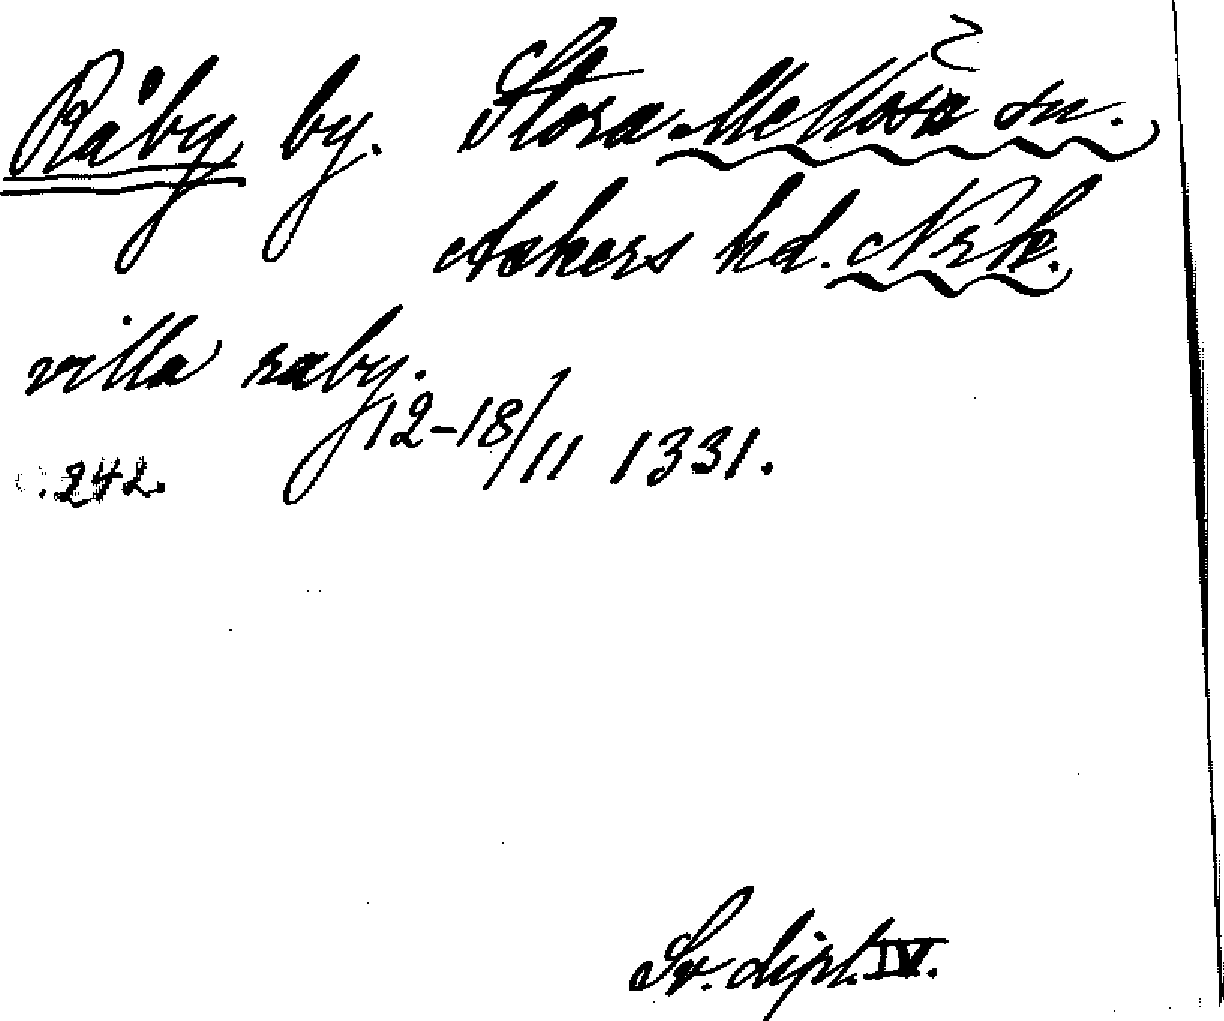 Råby by. Stora Mellösa sn.
Askers hd. Nrk.
villa raby.
12-18/11 1331.
.242.
Sv. dipl. IV.